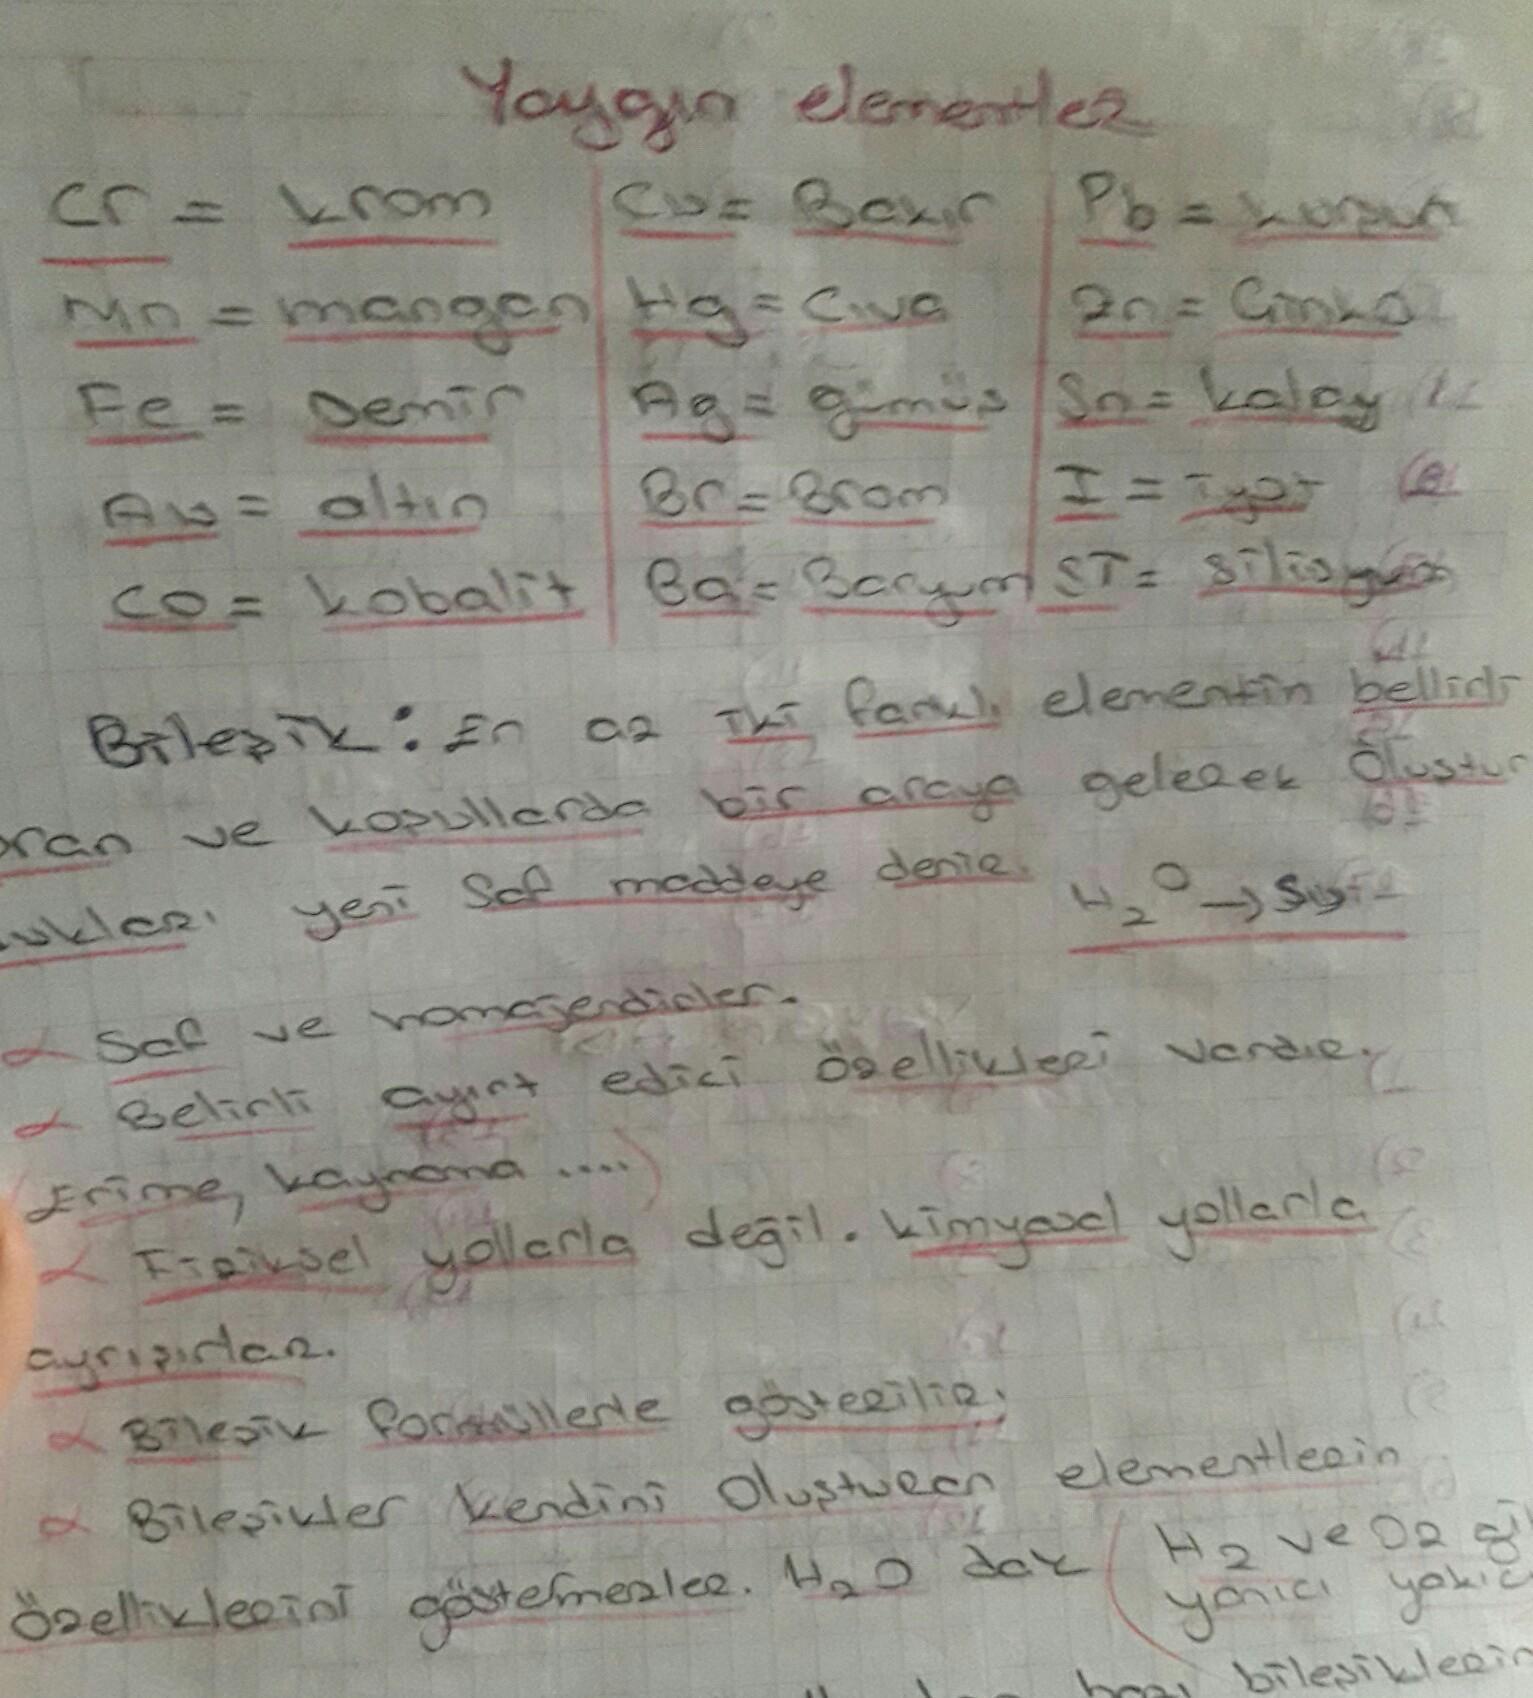 Yaygın elementler
Cr = krom
Mn = mangan
Fe = Demir
Au = altın
CO = kobalit
Cu = Bakır
Hg = Civa
Ag = gümüş
Br = Brom
Ba = Baryum
Pb = kurşun
Zn = Çinko
Sn = kalay
I = İyot
Sİ = silisyum
Bileşik : En az iki farklı elementin bellirli
oran ve koşullarda bir araya gelerek Oluştur
dukları yeni Saf maddeye denir. H2O →
Saf ve homojendirler.
Belirli ayırt edici özellikleri vardır.
Erime, kaynama ....)
Fiziksel yollarla değil. kimyasal yollarla
ayrışırlar.
Bileşik formüllerle gösterilir.
Bileşikler kendini Oluşturan elementlerin
özelliklerini göstermezler. H2O dak ( H2 ve O2
yanıcı
bazı bileşiklerin